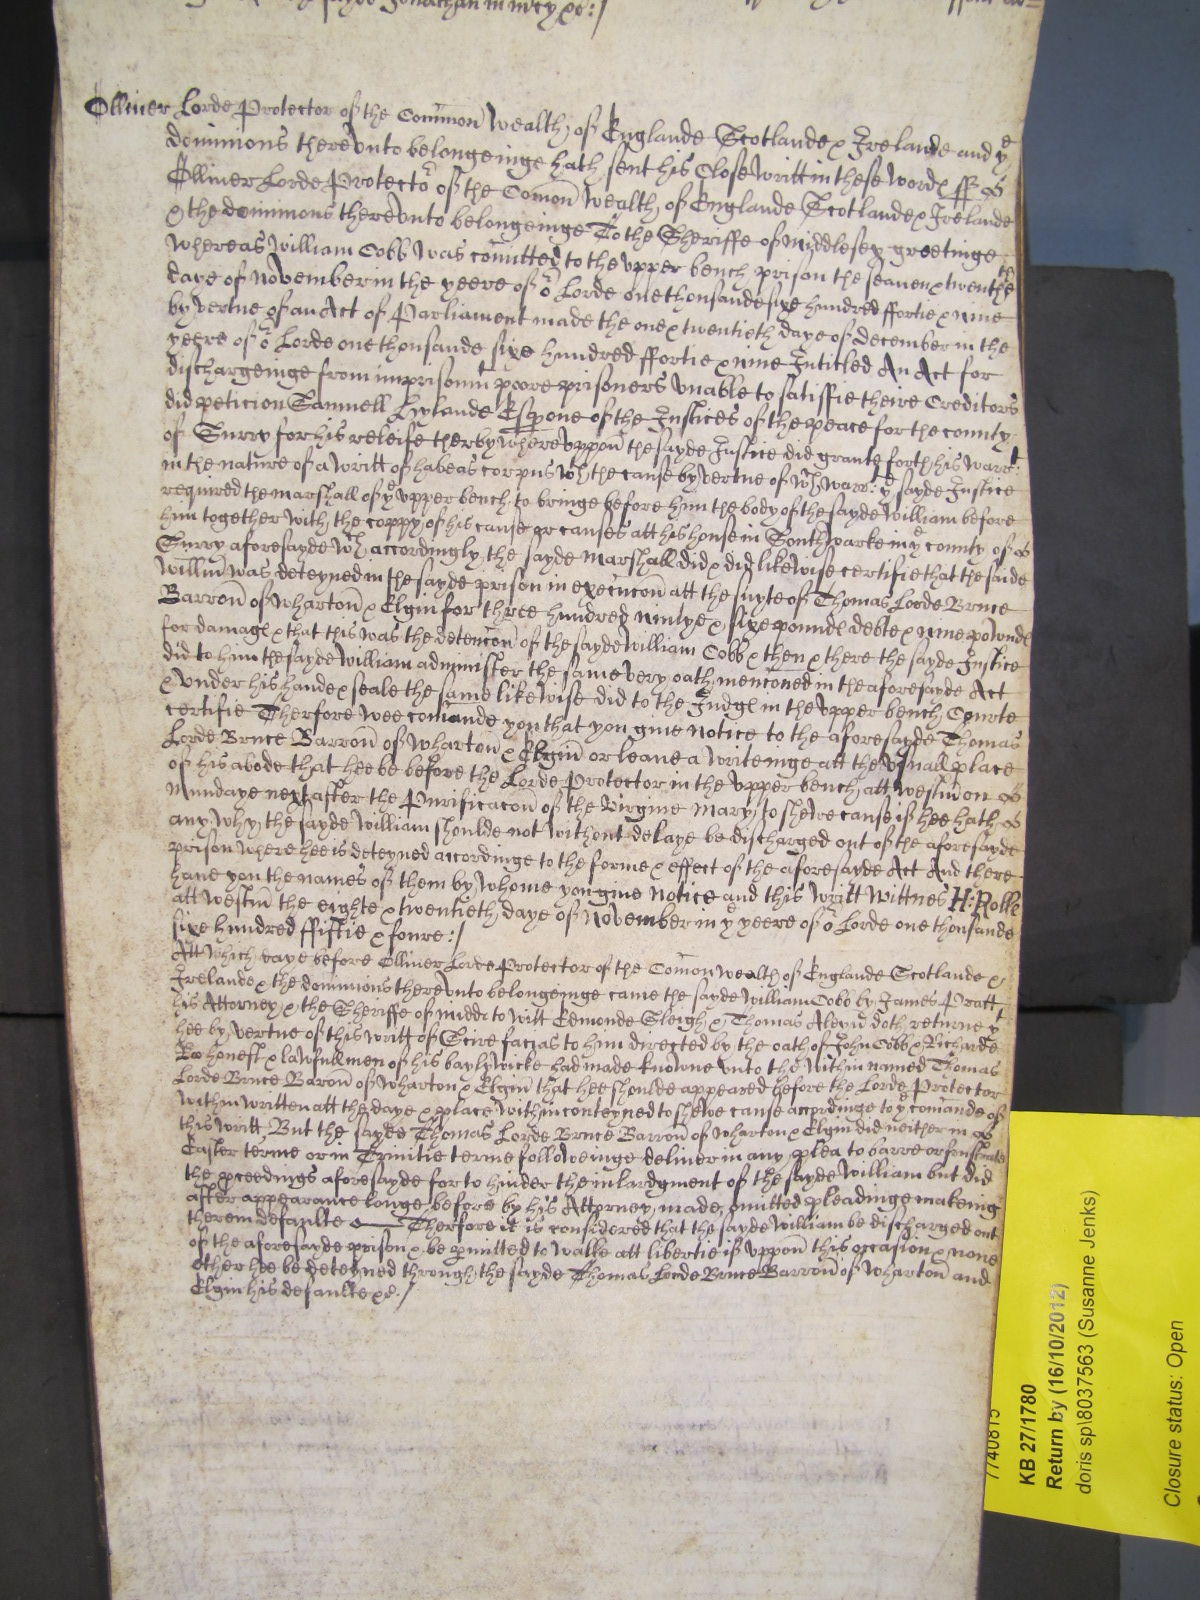 the sayde Jonathan in mcy &c:/
Olliver Lorde Protector of the Common Wealth of Englande Scotlande & Irelande and ye
dominions therevnto belongeinge hath sent his Close Writt in these Words ss
Olliver Lorde Protector of the Comon Wealth of Englande Scotlande & Irelande
& the dominions therevnto belongeinge To the Sheriffe of Middlesex greetinge
Whereas William Cobb Was comitted to the vpper bench prison the seaven & twentith
daye of November in the yeere of or Lorde one thousande sixe hundred ffortie & nine
by vertue of an Act of Parliament made the one & twentieth daye of december in the
yeere of or Lorde one thousande sixe hundred ffortie & nine Intitled An Act for
dischargeinge from imprisonmt poore prisoners vnable to satisfie theire Creditors
did peticion Samuell Hylande Esqr one of the Justices of the peace for the county
of Surry for his releise therby Wherevppon the sayde Justice did grante forth his warrt:
in the nature of a Writt of habeas corpus Wth the cause by vertue of Wch Warrt: ye sayde Justice
required the marshall of ye vpper bench to bringe before him the body of the sayde William before
him together With the coppy of his cause or causes att his house in Southwarke in ye county of
Surry aforesayde Wch accordingly the sayde Marshall did & did likewise certifie that the saide
Willm was deteyned in the sayde prison in execucon att the suyte of Thomas Lorde Bruce
Barron of Wharton & Elgin for three hundred nintye & sixe pounds debte & nine pownds
for damags & that this was the detencon of the sayde William Cobb & then & there the sayde Justice
did to him the sayde William administer the same very oath mencioned in the aforesayde Act
& vnder his hande & seale the same likewise did to the Judgs in the vpper bench Courte
certifie Therfore wee comande you that you give notice to the aforesayde Thomas
Lorde Bruce Barron of Wharton & Elgin or leave a Writeinge att the vsuall place
of his abode that hee be before the Lorde Protector in the vpper bench att Westm on
Mundaye next after the Purificacon of the Virgine Mary to shewe cause if hee hath
any Why the sayde William shoulde not Without delaye be discharged out of the aforesayde
prison Where hee is deteyned accordinge to the forme & effect of the aforesayde Act And there
have you the names of them by Whome you give notice and this Writt Wittnes H: Rolle
att Westm the eighte & twentieth daye of November in ye yeere of or Lorde one thousande
sixe hundred ffiftie & foure:/
Att Which daye before Olliver Lorde Protector of the Comon Wealth of Englande Scotlande &
Irelande & the dominions therevnto belongeinge came the sayde William Cobb by James Pratt
his Attorney & the Sheriffe of Midd to Witt Edmonde Sleigh & Thomas Alevn doth returne yt
hee by vertue of this Writt of Scire facias to him directed by the oath of John Cobb & Richarde
honest & lawfull men of his baylywicke had made knowne vnto the Within named Thomas
Lorde Bruce Baron of Wharton & Elgin that hee shoulde appeared before the Lorde Protector
Within Written att the daye & place Within conteyned to shewe cause accordinge to ye comande of
this Writt But the sayde Thomas Lorde Bruce Barron of Wharton & Elgin did neither in
Easter terme or in Trinitie terme followeinge deliver in any plea to barre or frustrate
the proceedings aforesayde for to hinder the inlardgment of the sayde William but did
after appearance longe before by his Attorney made, omitted pleadinge makeing
therein defaulte Therfore it is considered that the sayde William be discharged out
of the aforesayde prison & be pmitted to Walke att libertie if vppon this occasion & none
other hee be deteyned through the sayde Thomas Lorde Bruce Barron of Wharton and
Elgin his defaulte &c:/
7740815
KB 27/1780
Return by (16/10/2012)
doris sp\8037563 (Susanne Jenks)
Closure status: Open